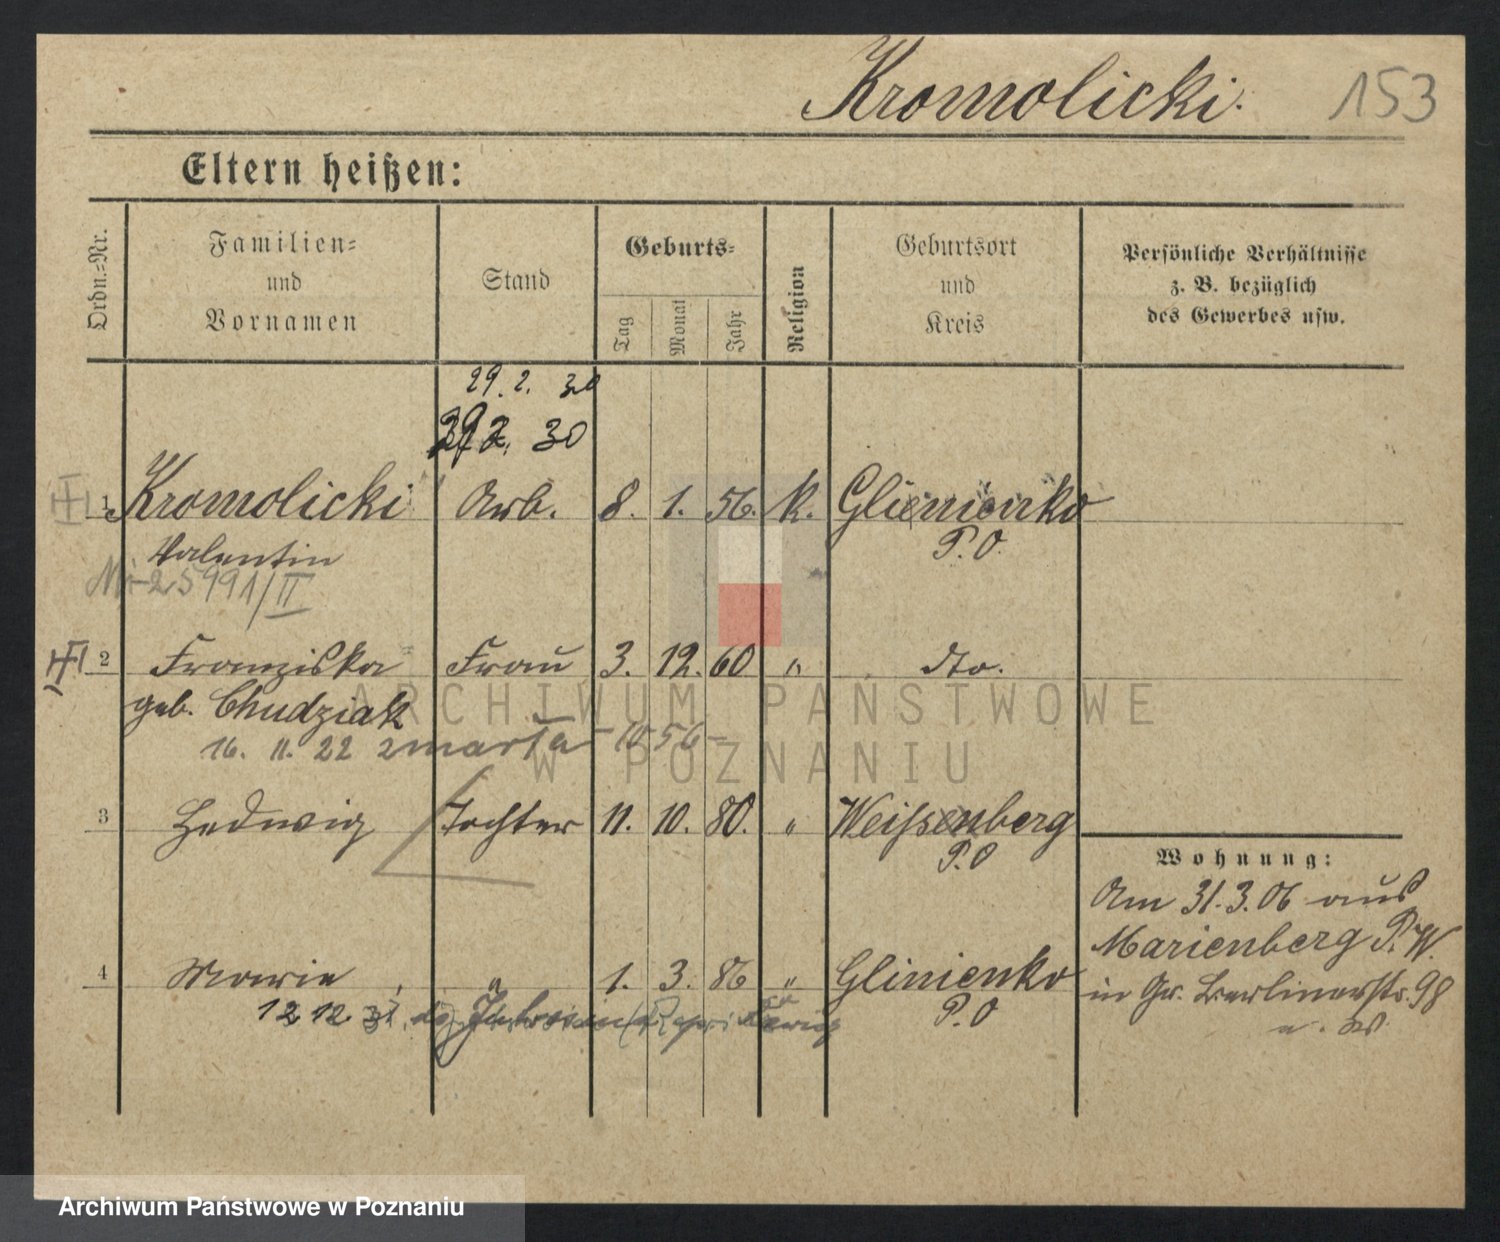 Kromolicki. 153
Eltern heißen:
Ordn.=Nr.
Familien=
und
Vornamen
Stand
Geburts=
Tag
Monat
Jahr
Religion
Geburtsort
und
Kreis
Persönliche Verhältnisse
z. B. bezüglich
des Gewerbes usw.
29. 2. 30
29 2. 30
1 Kromolicki Arb. 8. 1. 56. k. Glinienko
Valentin P. O.
25991/II
2 Franziska Frau 3. 12. 60 " dto.
geb. Chudziak
16. 11. 22 zmarła - 1056 -
3 Hedwig Tochter 11. 10. 80. " Weissenberg
P. O
4 Marie " 1. 3. 86 " Glinienko
P. O
12 12 31
Wohnung:
Am 31. 3. 06 aus
Marienberg P. W.
in Gr. Berlinerstr. 98
ARCHIWUM PAŃSTWOWE
W POZNANIU
Archiwum Państwowe w Poznaniu